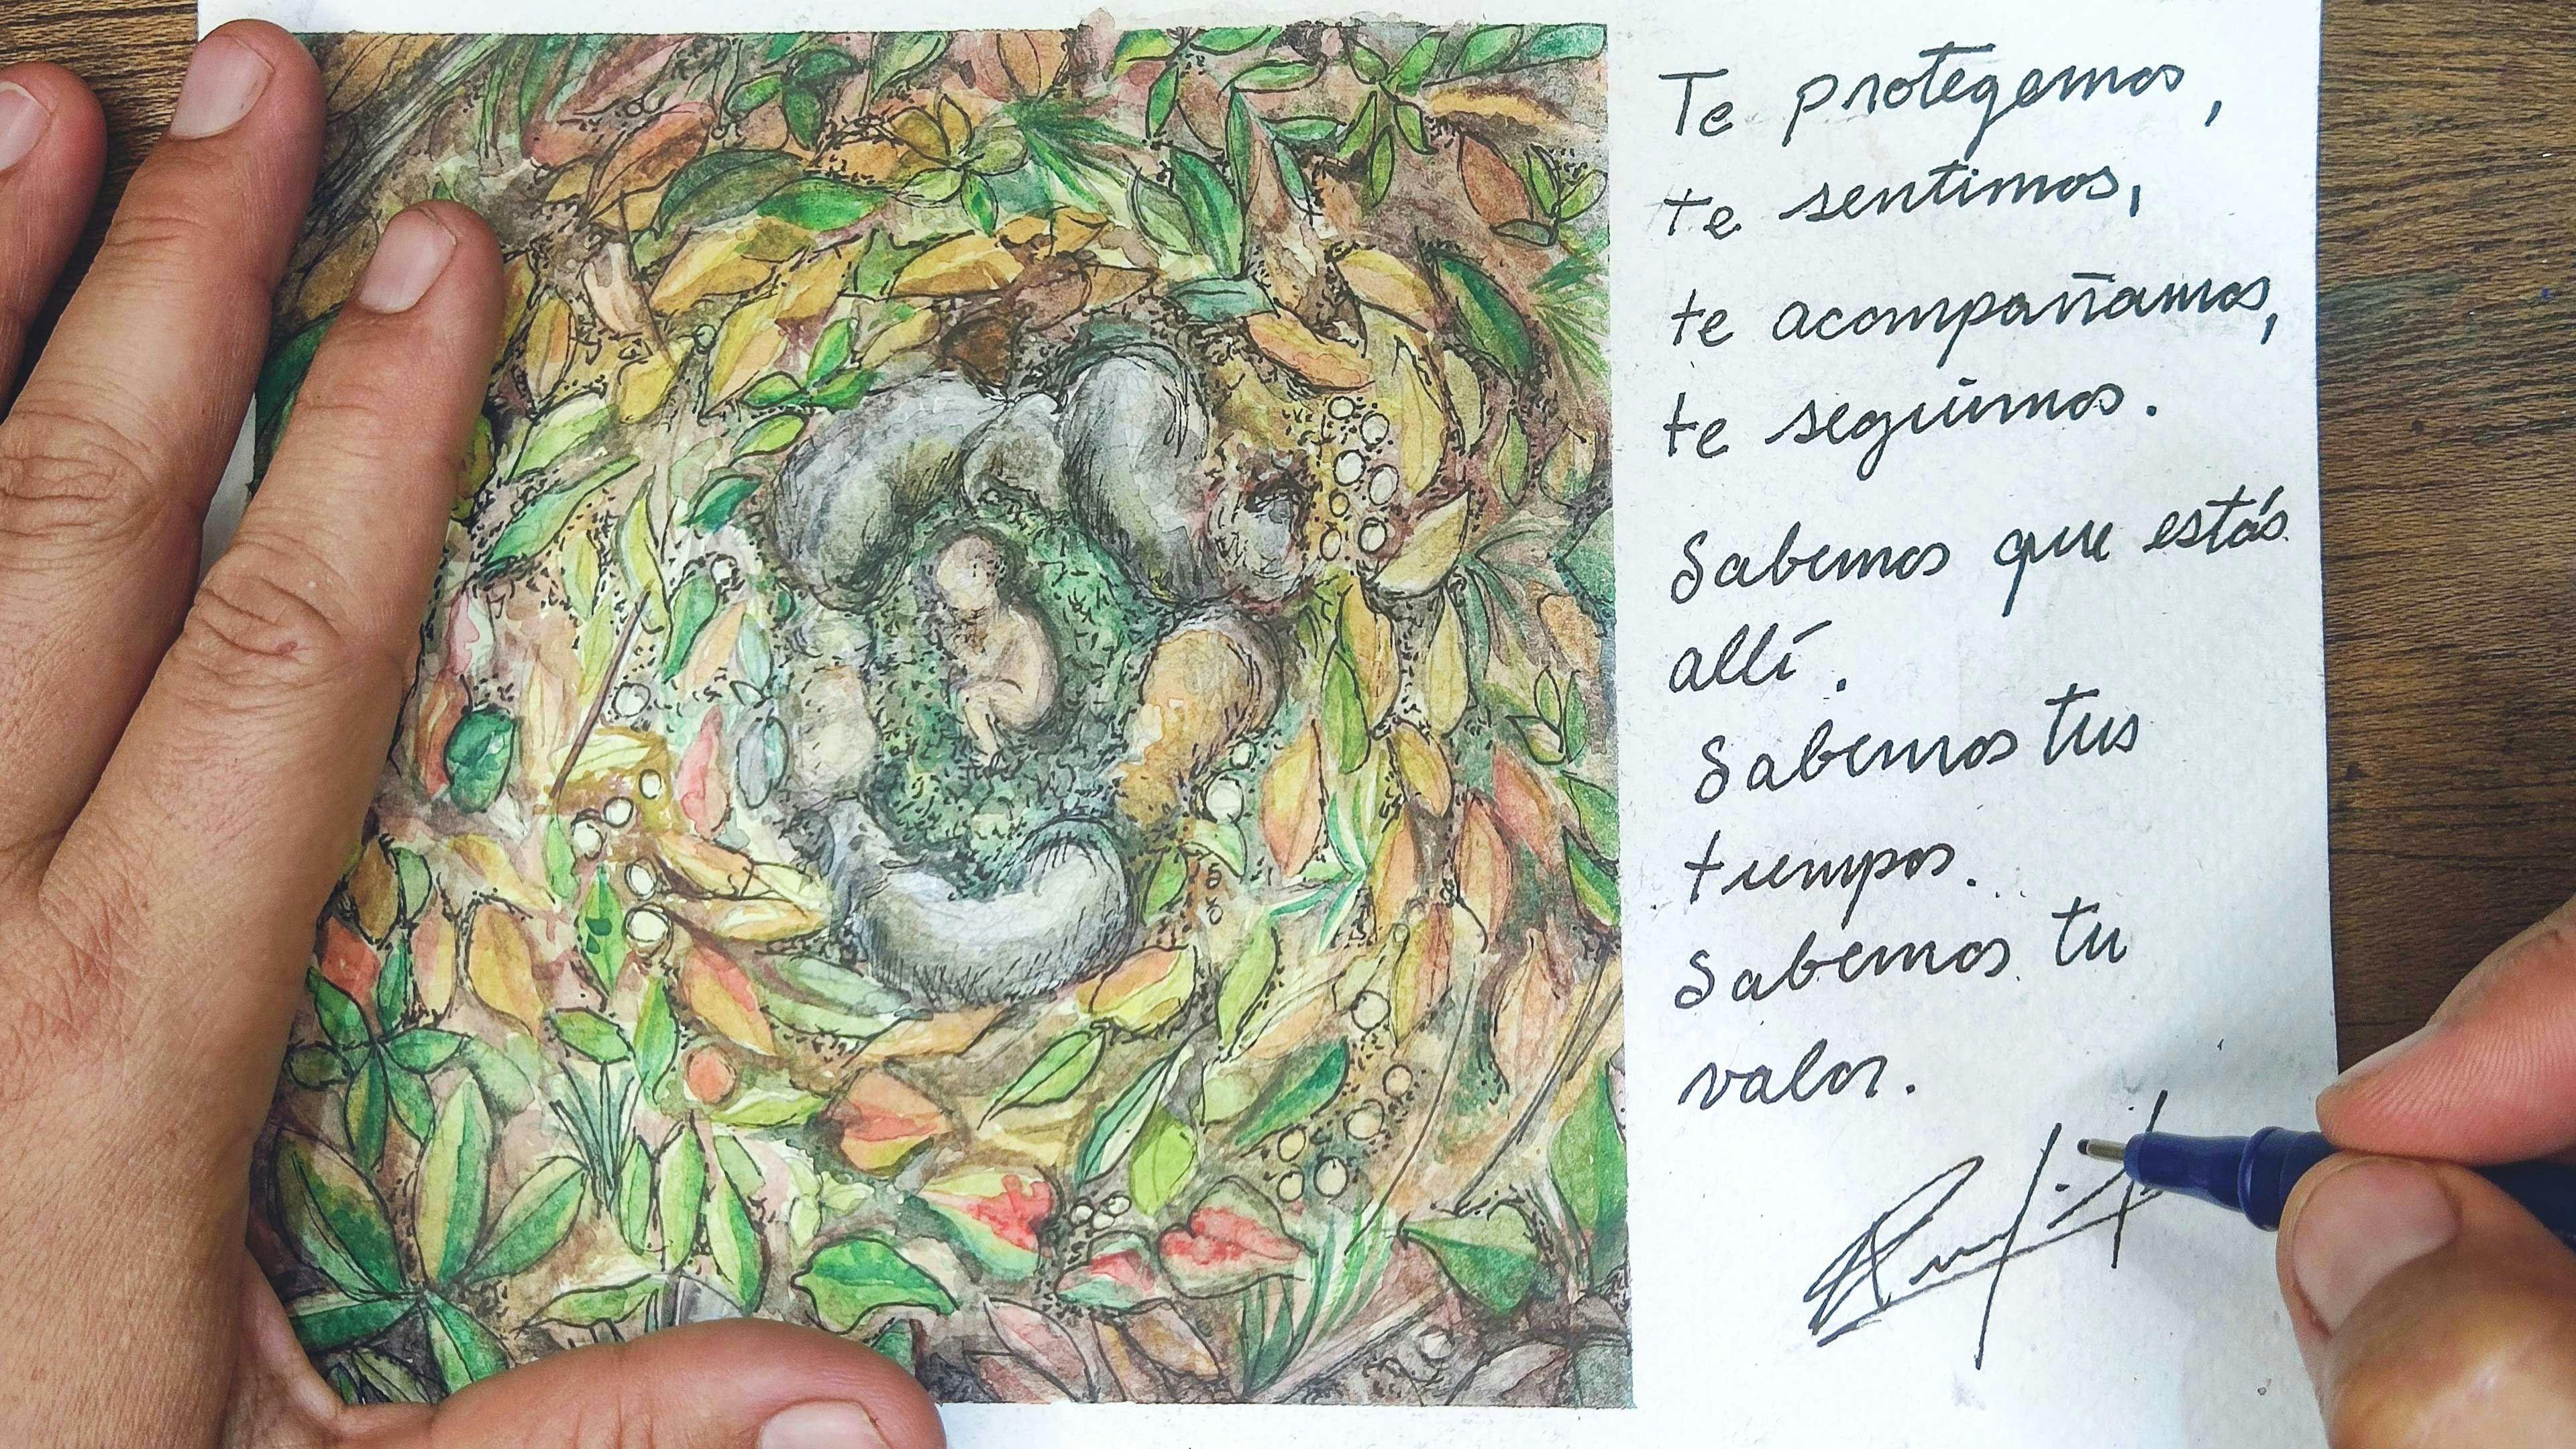 Te protegemos,
te sentimos,
te acompañamos,
te seguimos.
Sabemos que estás
allí.
Sabemos tus
tiempos.
Sabemos tu
valor.